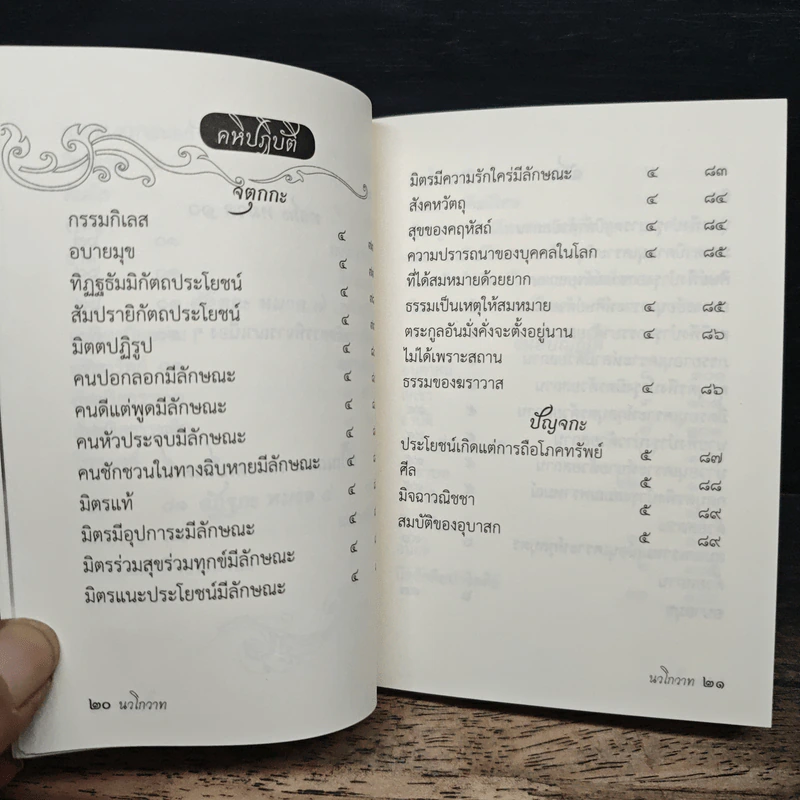 คหิปฏิบัติ
จตุกกะ
กรรมกิเลส ๔
อบายมุข ๔
ทิฏฐธัมมิกัตถประโยชน์ ๔
สัมปรายิกัตถประโยชน์ ๔
มิตตปฏิรูป ๔
คนปอกลอกมีลักษณะ ๔
คนดีแต่พูดมีลักษณะ ๔
คนหัวประจบมีลักษณะ ๔
คนชักชวนในทางฉิบหายมีลักษณะ ๔
มิตรแท้ ๔
มิตรมีอุปการะมีลักษณะ ๔
มิตรร่วมสุขร่วมทุกข์มีลักษณะ ๔
มิตรแนะประโยชน์มีลักษณะ ๔
๒๐ นวโกวาท
มิตรมีความรักใคร่มีลักษณะ ๔ ๘๓
สังคหวัตถุ ๔ ๘๔
สุขของคฤหัสถ์ ๔ ๘๔
ความปรารถนาของบุคคลในโลก ๔ ๘๕
ที่ได้สมหมายด้วยยาก
ธรรมเป็นเหตุให้สมหมาย ๔ ๘๕
ตระกูลอันมั่งคั่งจะตั้งอยู่นาน ๔ ๘๖
ไม่ได้เพราะสถาน
ธรรมของฆราวาส ๔ ๘๖
ปัญจกะ
ประโยชน์เกิดแต่การถือโภคทรัพย์ ๕ ๘๗
ศีล ๕ ๘๘
มิจฉาวณิชชา ๕ ๘๙
สมบัติของอุบาสก ๕ ๘๙
นวโกวาท ๒๑